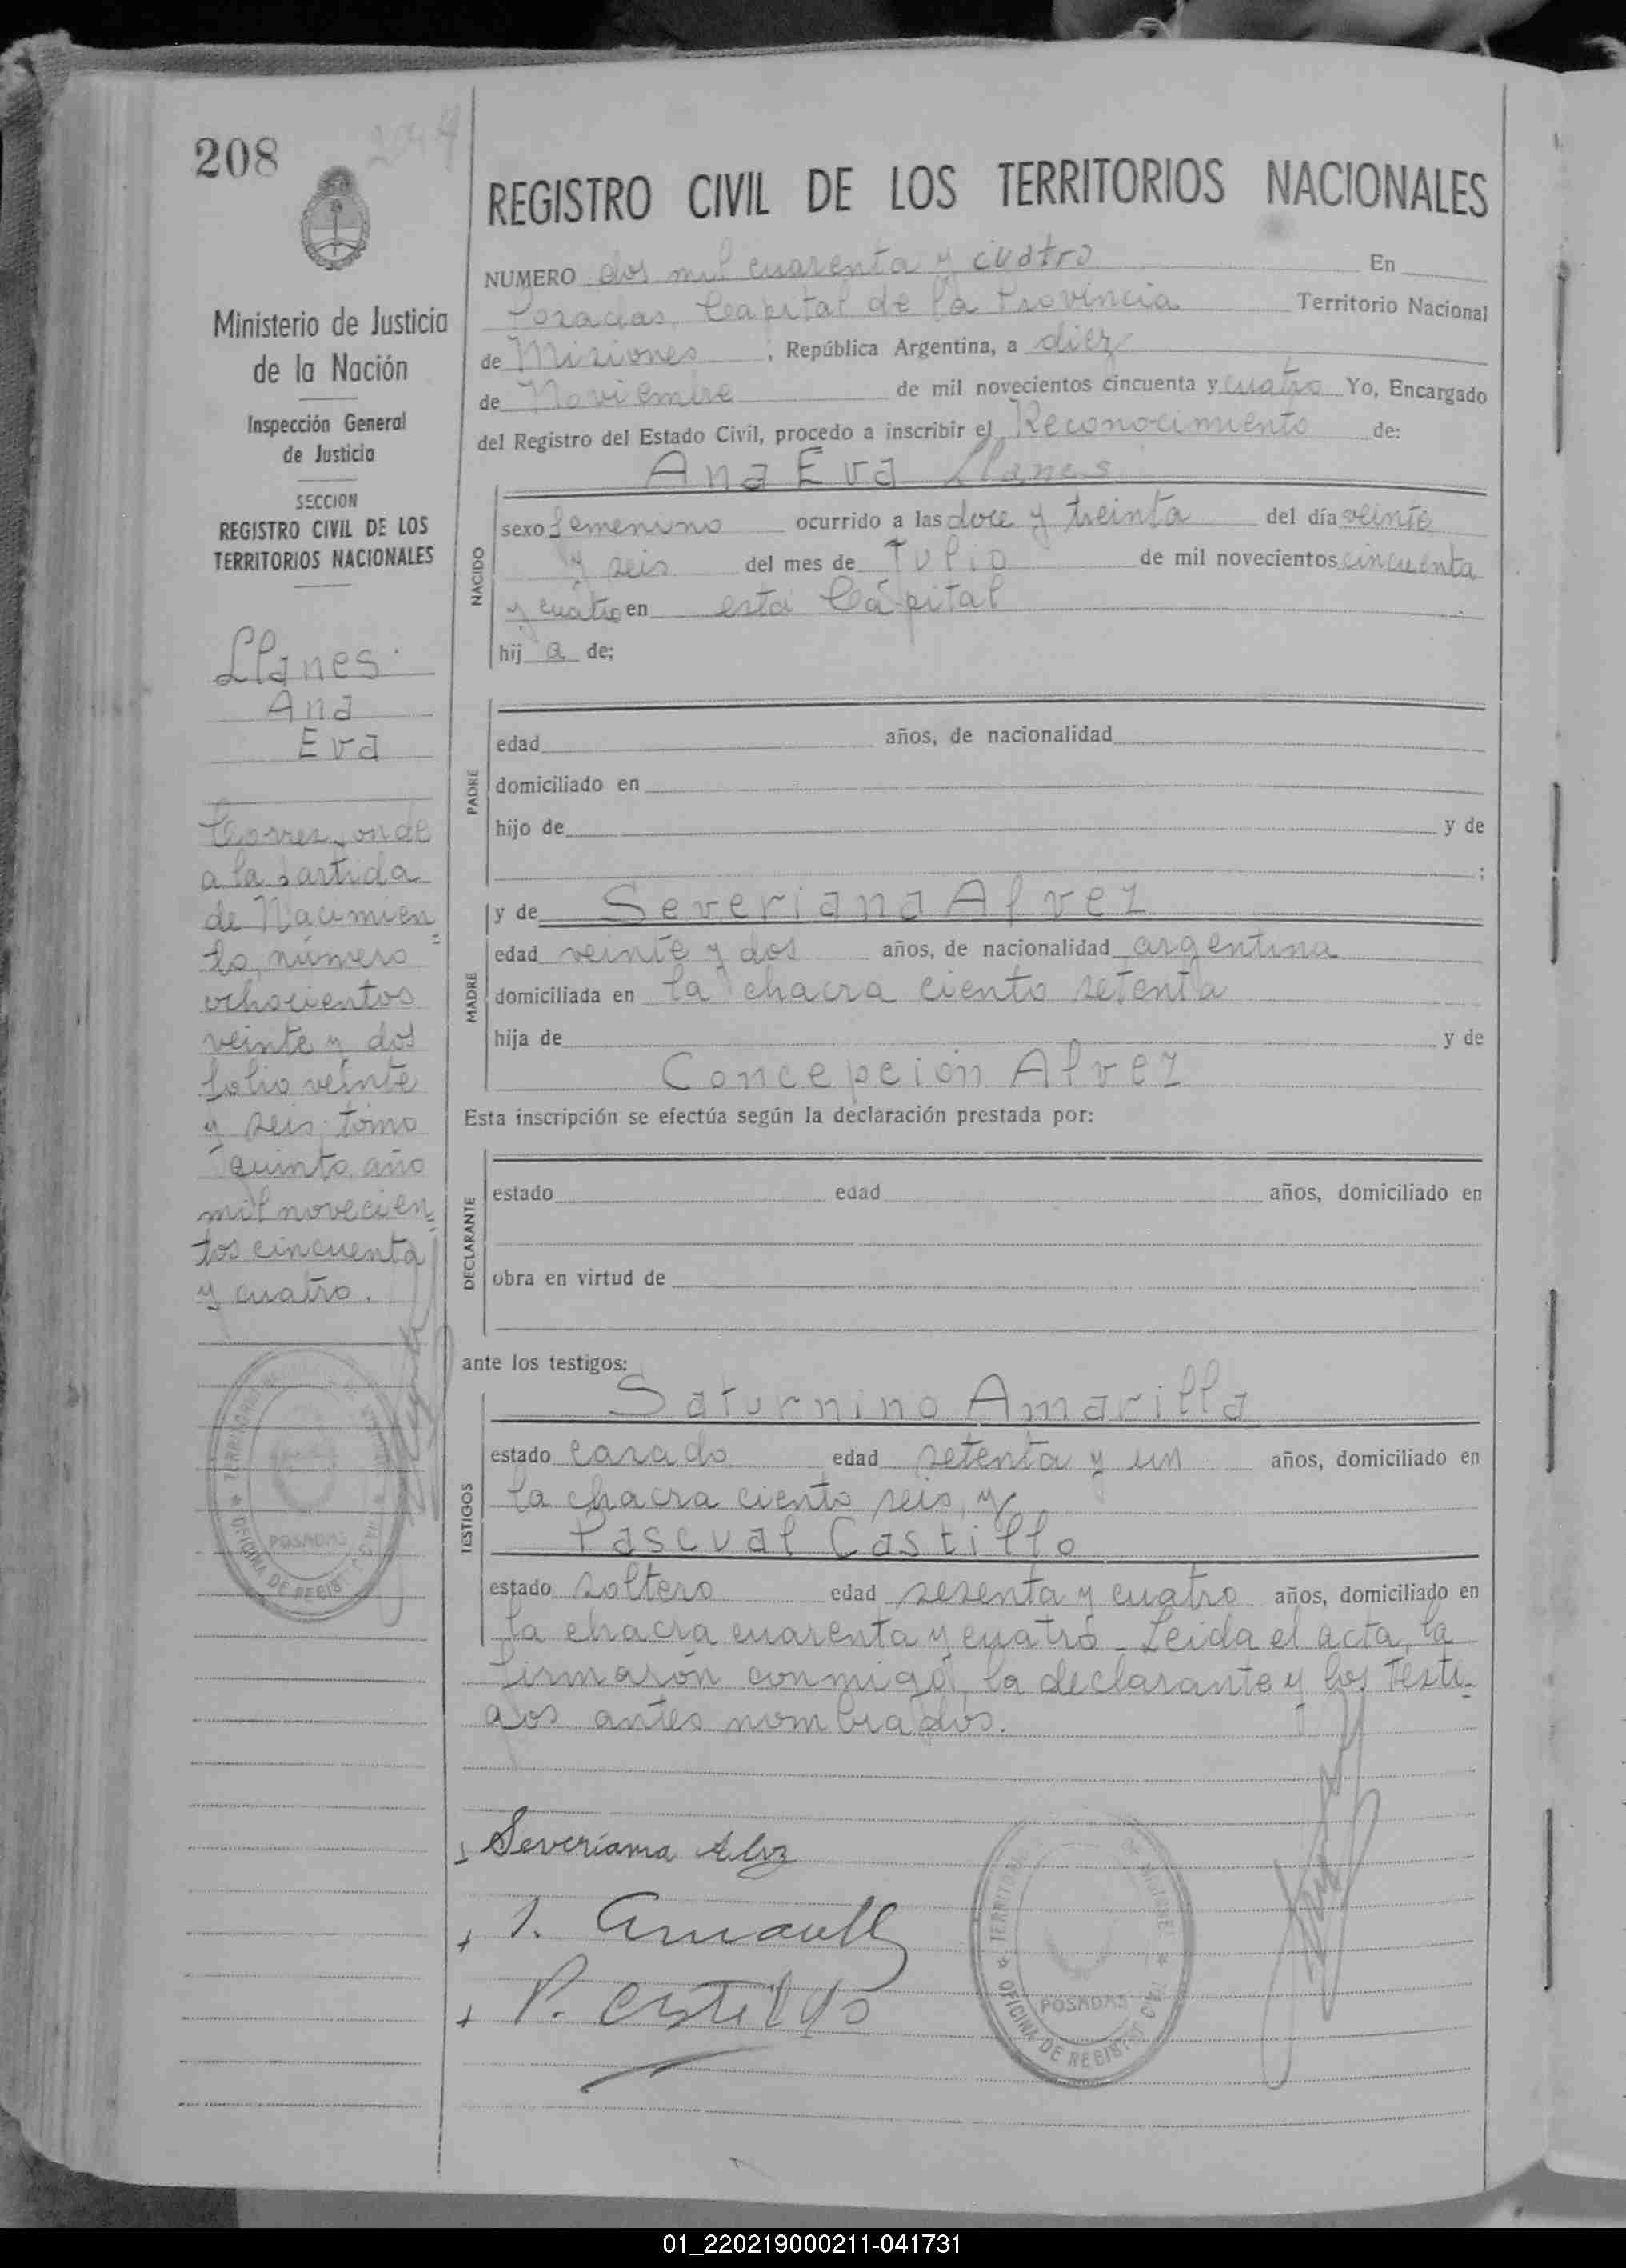 208
2044
REGISTRO CIVIL DE LOS TERRITORIOS NACIONALES
Ministerio de Justicia
de la Nación
Inspección General
de Justicia
SECCION
REGISTRO CIVIL DE LOS
TERRITORIOS NACIONALES
Llanes
Ana
Eva
Corresponde
a la partida
de Nacimien=
to, número
ochocientos
veinte y dos
folio veinte
y seis, tomo
quinto, año
mil novecien=
tos cincuenta
y cuatro.
POSADAS
OFICINA DE REGISTRO CIVIL
NUMERO dos mil cuarenta y cuatro En
Posadas, Capital de la Provincia Territorio Nacional
de Misiones ; República Argentina, a diez
de Noviembre de mil novecientos cincuenta y cuatro Yo, Encargado
del Registro del Estado Civil, procedo a inscribir el Reconocimiento de:
Ana Eva Llanes
NACIDO
sexo femenino ocurrido a las doce y treinta del día veinte
y seis del mes de Julio de mil novecientos cincuenta
y cuatro en esta Capital
hij a de;
PADRE
edad años, de nacionalidad
domiciliado en
hijo de y de
;
MADRE
y de Severiana Alvez
edad veinte y dos años, de nacionalidad argentina
domiciliada en la chacra ciento setenta
hija de y de
Concepción Alvez
Esta inscripción se efectúa según la declaración prestada por:
DECLARANTE
estado edad años, domiciliado en
obra en virtud de
ante los testigos:
TESTIGOS
Saturnino Amarilla
estado casado edad setenta y un años, domiciliado en
la chacra ciento seis, y
Pascual Castillo
estado soltero edad sesenta y cuatro años, domiciliado en
la chacra cuarenta y cuatro - Leida el acta, la
firmarón conmigo, la declarante y los testi-
gos antes nombrados.
Severiana Alvz
S. Amarilla
P. Castillo
POSADAS
OFICINA DE REGISTRO CIVIL
01_220219000211-041731